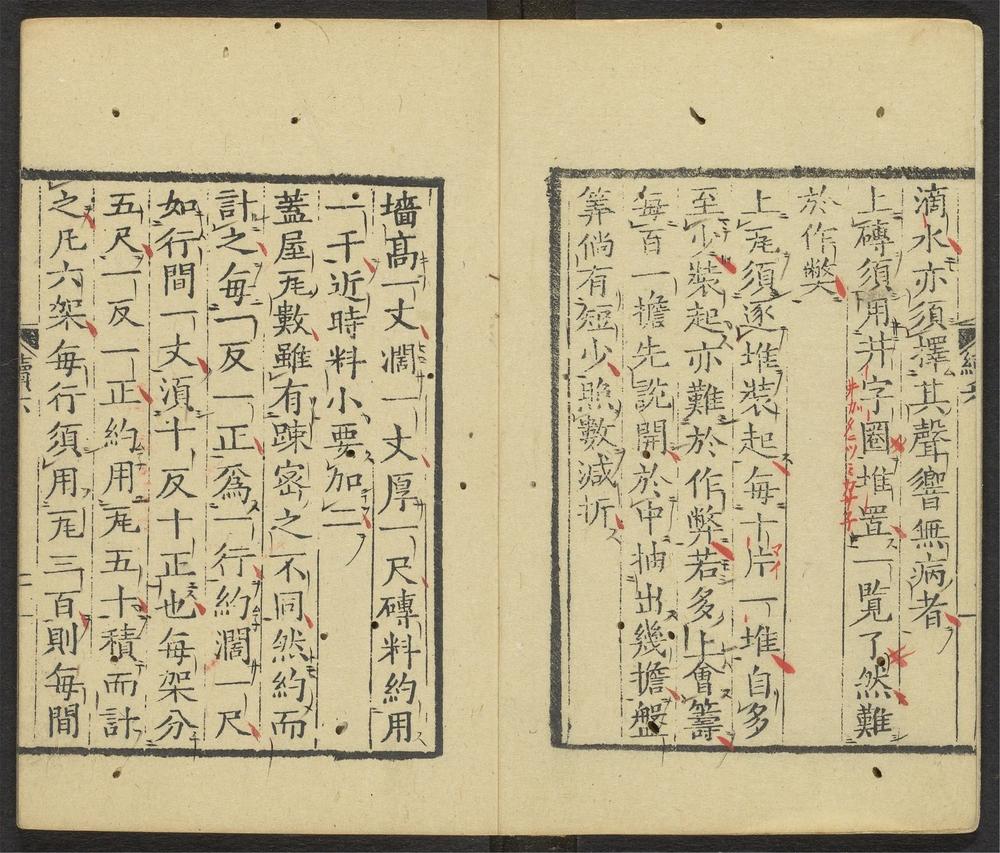 滴水亦須擇其聲響無病者
上磚須用井字圈堆置一覧了然難
於作弊
上瓦須逐堆装起每十片一堆自多
至少装起亦難於作弊若多上會籌
每百一擔先說開於中抽出幾擔盤
筭倘有短少照數減折
墻髙一丈濶一丈厚一尺磚料約用
一千近時料小要加二
蓋屋瓦數雖有踈宻之不同然約而
計之每一反一正爲一行約濶一尺
如行間一丈湏十反十正也每架分
五尺一反一正約用瓦五十積而計
之凡六架每行須用瓦三百則每間